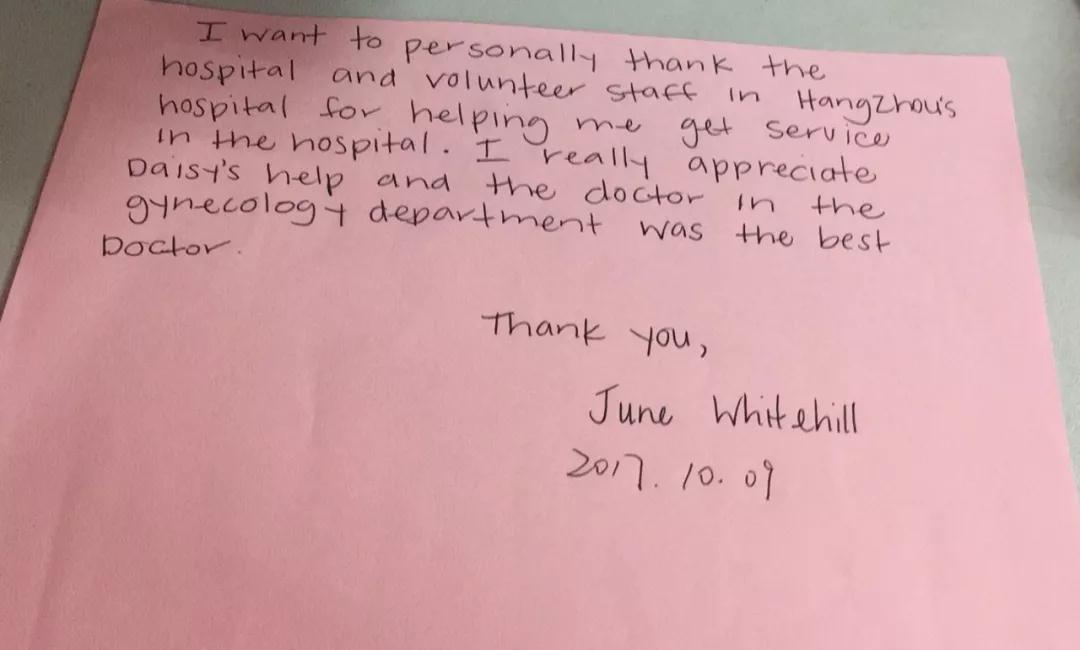 I want to personally thank the
hospital and volunteer staff in HangZhou's
hospital for helping me get service
in the hospital. I really appreciate
Daisy's help and the doctor in the
gynecology department was the best
Doctor.
Thank you,
June Whitehill
2017.10.09